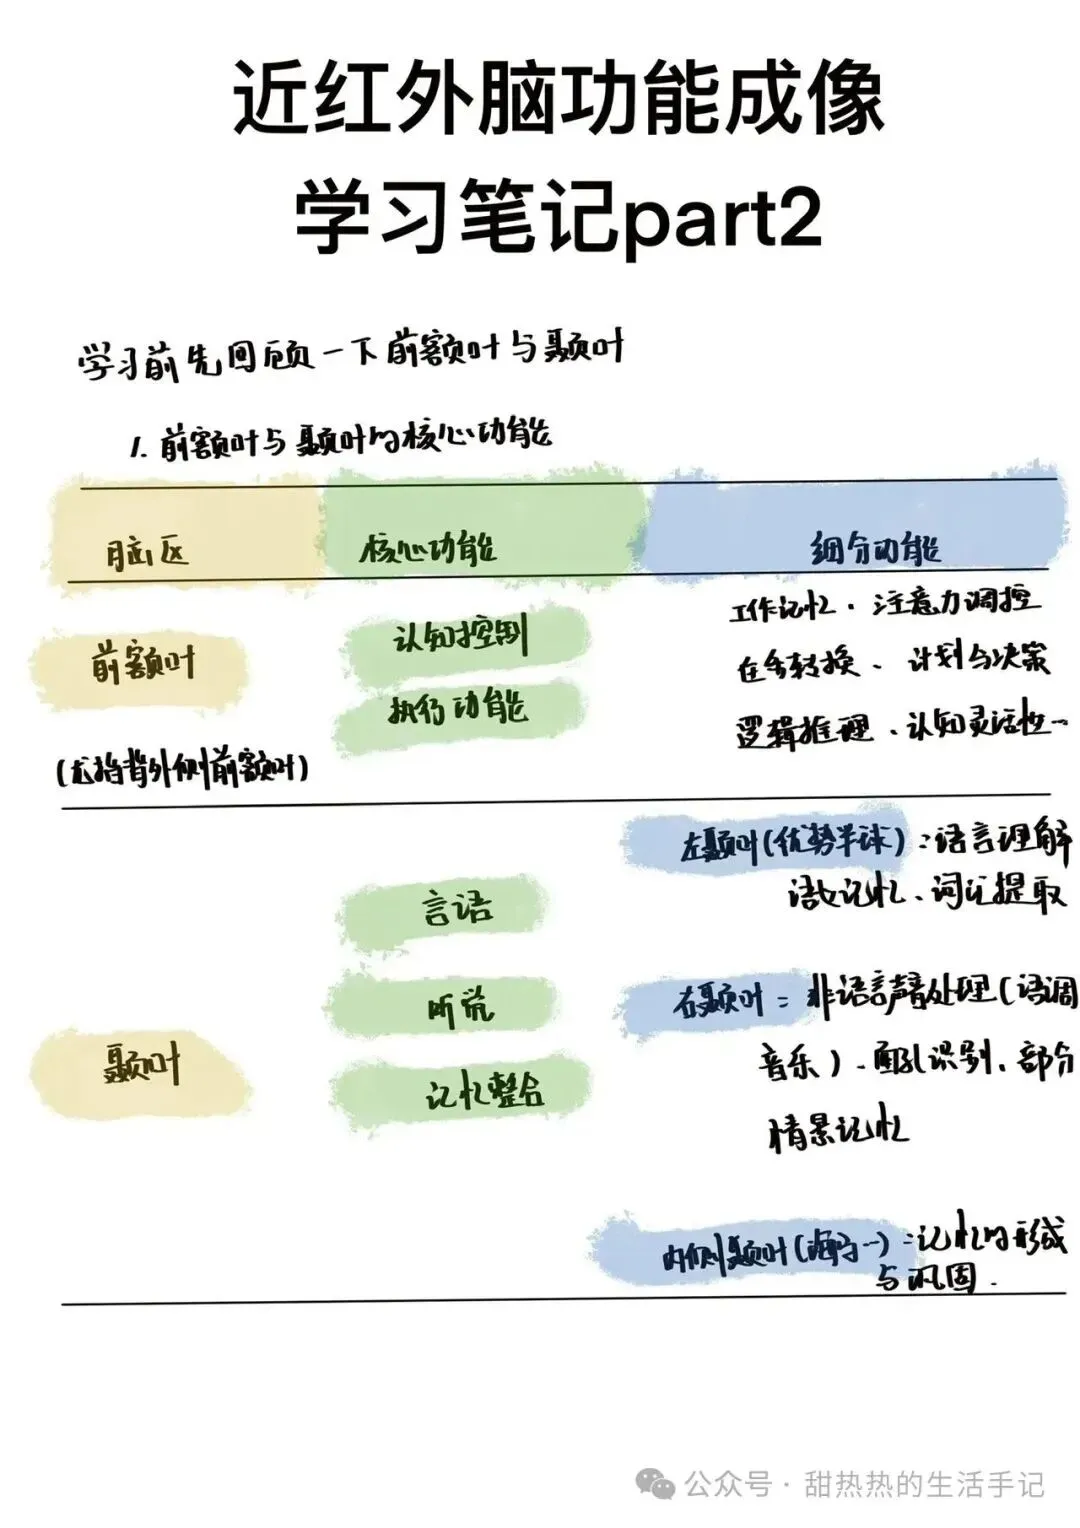 近红外脑功能成像
学习笔记part2
学习前先回顾一下前额叶与颞叶
1. 前额叶与颞叶的核心功能
脑区 核心功能 细分功能
认知控制 工作记忆、注意力调控
前额叶 任务转换、计划与决策
执行功能 逻辑推理、认知灵活性…
(尤指背外侧前额叶)
左颞叶(优势半球):语言理解
言语 语义记忆、词汇提取
听觉 右颞叶:非语言声音处理(语调
颞叶 音乐)、面孔识别、部分
记忆整合 情景记忆
内侧颞叶(海马…):记忆的形成
与巩固.
公众号·甜热热的生活手记